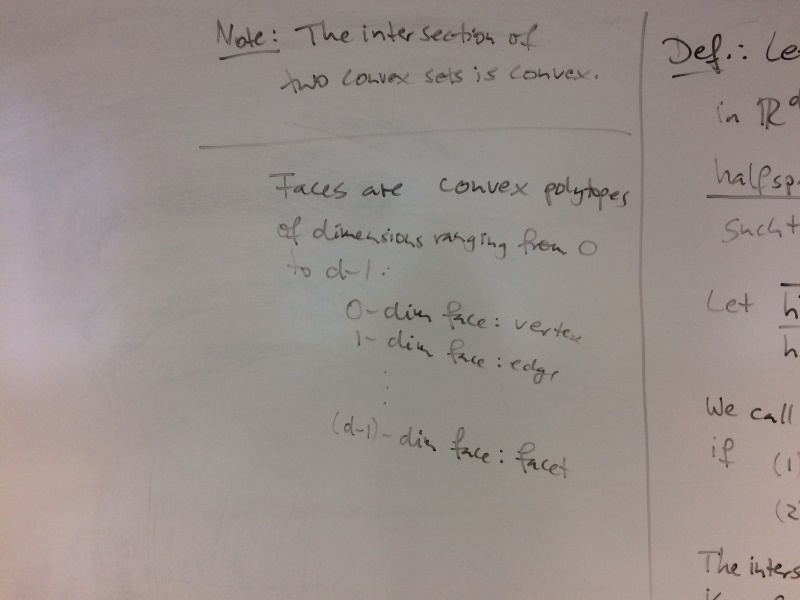 Note: The intersection of
two convex sets is convex.
Faces are convex polytopes
of dimensions ranging from 0
to d-1:
0-dim face: vertex
1-dim face: edge
⋮
(d-1)-dim face: facet
Def.: Le
in ℝᵈ
halfsp
such t
Let h
h
We call
if (1)
(2
The inters